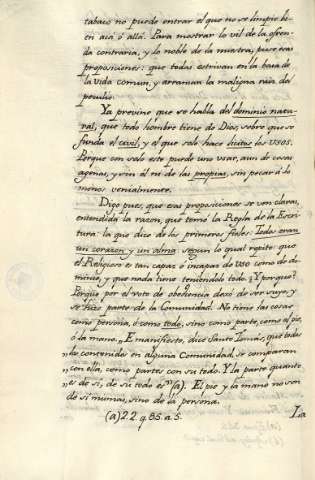 tabaco no puede entrar el que no se limpie bi-
en acà ò allà. Para mostrar lo vil de la ofren-
da contraria, y lo noble de la nuestra, puse tres
proposiciones: que todas estrivan en la basa de
la vida comun, y arrancan la maligna raiz del
peculio.
Ya previne que se habla del dominio natu-
ral, que todo hombre tiene de Dios, sobre que se
funda el civil, y el que solo hace licitos los usos.
Porque con solo este puede uno usar, aun de cosas
agenas, y sin èl ni de las propias, sin pecar à lo
menos venialmente.
Digo pues, que esas proposiciones se ven claras,
entendida la razon, que tomò la Regla de la Escri-
tura: la que dice de los primeros fieles: Todos eran
un corazon y un alma: segun lo qual repito: que
el Religioso es tan capaz è incapaz de uso como de do-
minio, y que nada tiene teniendolo todo. ¿Y porque?
Porque por el voto de obediencia dexò de ser suyo, y
se hizo parte de la Comunidad. No tiene las cosas
como persona, ò como todo, sino como parte, como el pie,
ò la mano. "Es manifiesto, dice Santo Tomàs, que todos
"los contenidos en alguna Comunidad, se comparan
"con ella, como partes con su todo. Y la parte quanto
"es de sì, de su todo es" (a). El pie y la mano no son
de sì mismas, sino de la persona.
(a) 2.2. q. 85. a. 5. La